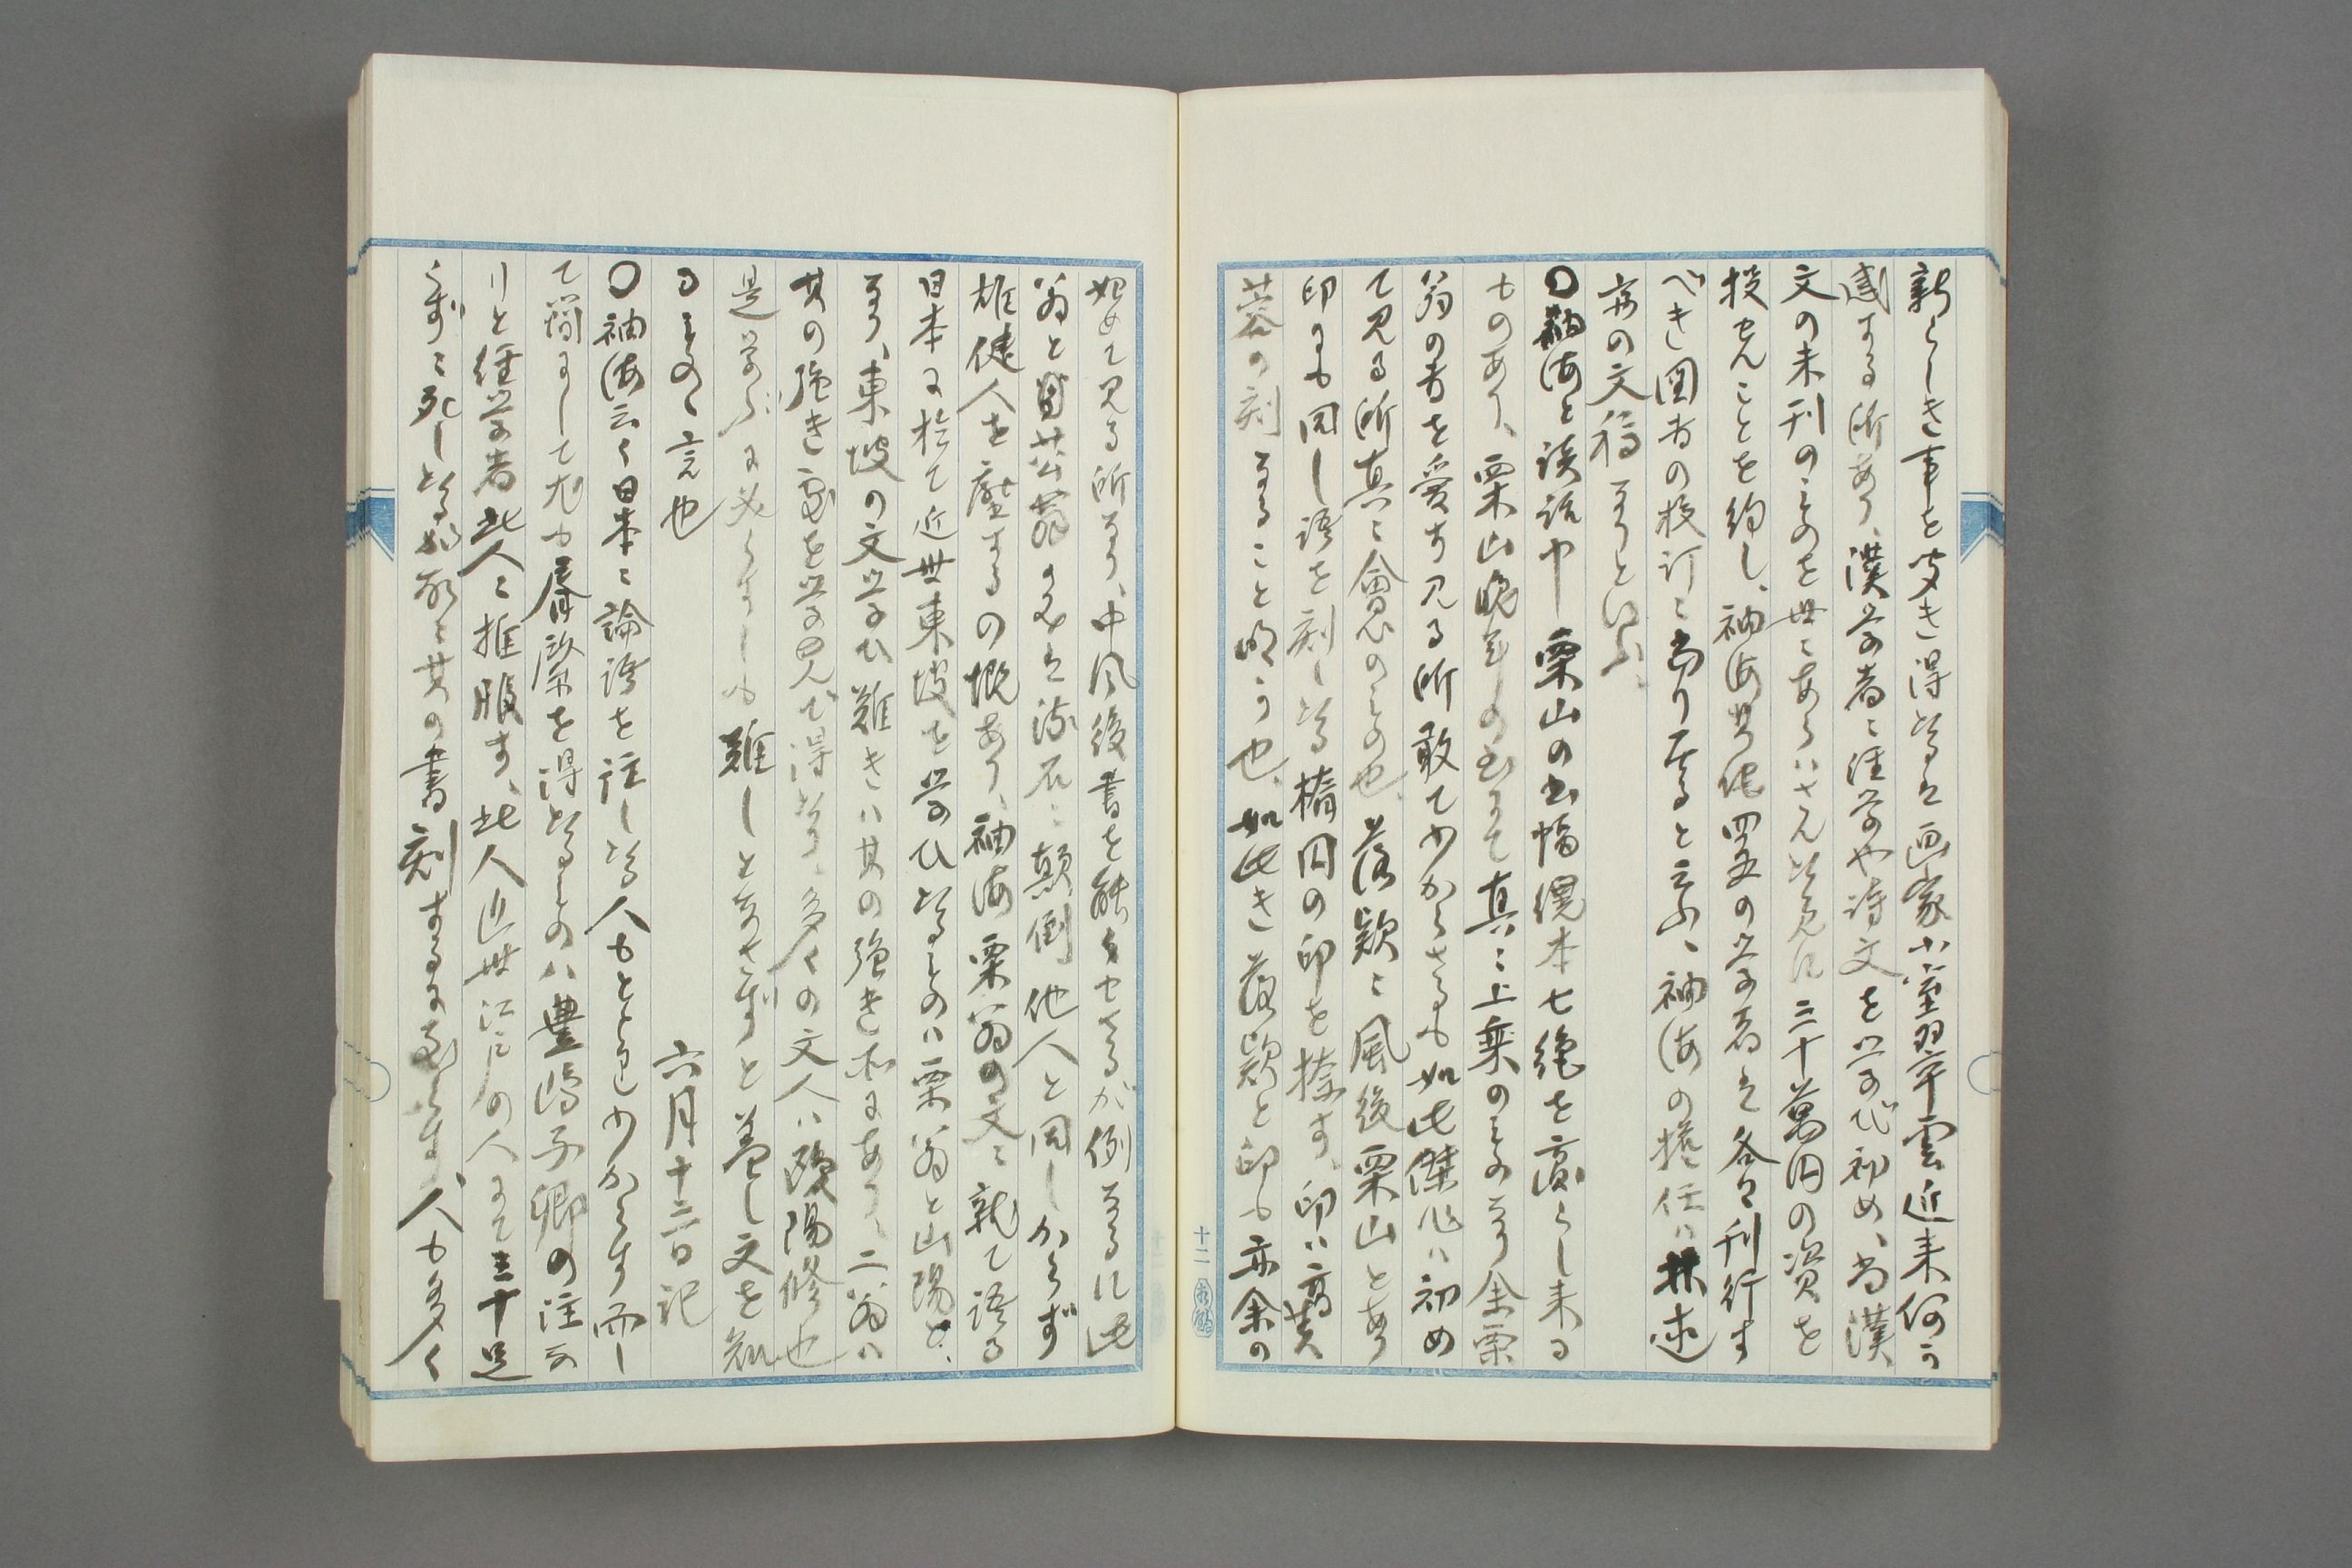 新らしき事を聞き得たるは画家小室翠雲近来何か
感ずる所あり、漢学者に経学や詩文を学び初め、尚漢
文の未刊のものを世にあらはさんため三十萬円の資を
投せんことを約し、袖海其他四五の学者は各自刊行す
べき図書の校訂に当り居ると云ふ、袖海の擔任は林述
斎の文稿なりといふ、
〇袖海と談話中栗山の書幅優本七絶を齎らし来る
ものあり、栗山晩年の書にて真に上乗のものなり余栗
翁の書を愛す見る所敢て少からざるも如此傑作は初め
て見る所真に會心のもの也、落款に風後栗山とあり
印にも同し語を刻したる楕円の印を捺す、印は高芙
蓉の刻なること明か也、如此き落款と印も亦余の
始めて見る所なり、中風後書を能くせさるが例なるに此
翁と貝益翁のみは流石に顛倒他人と同しからず
雄健人を壓するの慨あり、袖海栗翁の文に就て語る
日本に於て近世東坡を学ひたるものは栗翁と山陽と、
なり、東坡の文学ひ難きは其の強き所にあり、二翁は
其の強き處を学んで得たり、多くの文人は欧陽修也
是学ぶに必らすしも難しと為さずと蓋し文を知
るもの丶言也
六月十二日記
〇袖海云く日本に論語を註したる人もとより少からす而し
て簡にして尤も肯綮を得たるものは豊嶋子卿の注な
りと経学者此人に推服す、此人近世江戸の人にて三十足
らずに死したる如故に其の書刻するに至らす、人も多く
十二